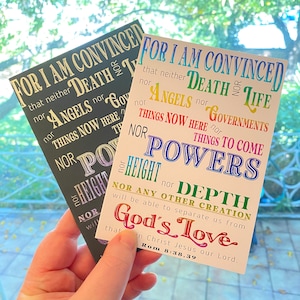 FOR I AM CONVINCED
that neither DEATH NOR LIFE
nor ANGELS nor GOVERNMENTS
THINGS NOW HERE nor THINGS TO COME
NOR POWERS
nor HEIGHT nor DEPTH
NOR ANY OTHER CREATION
will be able to separate us from
God's Love
that Christ Jesus our Lord.
Rom 8:38,39
FOR I AM CONVINCED
that neither DEATH NOR
nor ANGELS nor
THINGS NOW HERE
NOR PO
HEIGHT
NOR